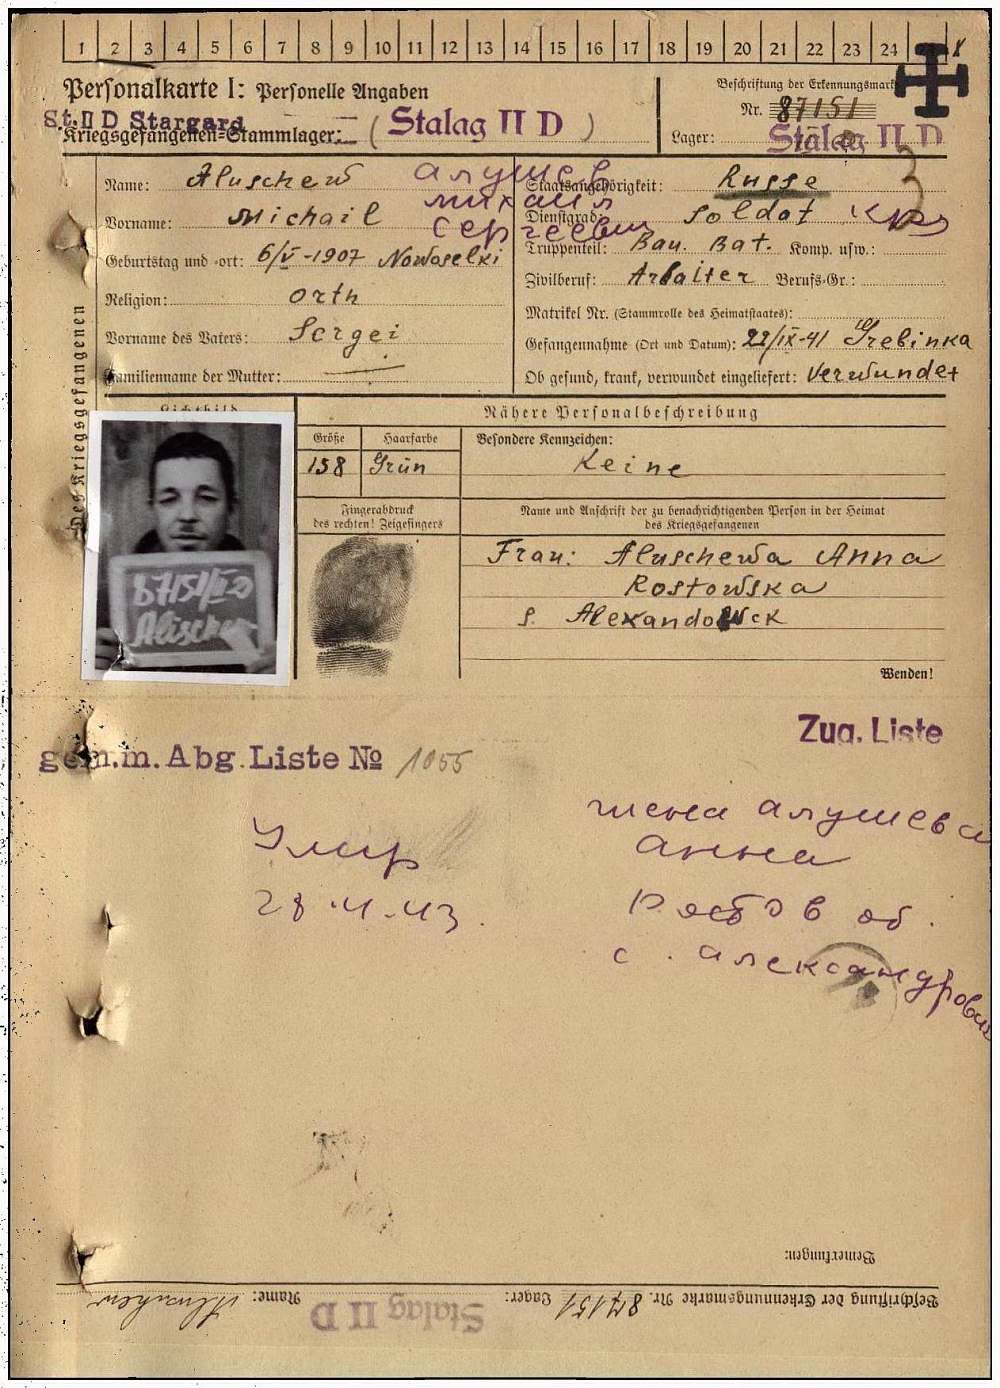 1 2 3 4 5 6 7 8 9 10 11 12 13 14 15 16 17 18 19 20 21 22 23 24
Personalkarte I: Personelle Angaben
St. II D Stargard
Kriegsgefangenen-Stammlager: (Stalag II D)
Beschriftung der Erkennungsmarke
Nr. 87151
Lager: Stalag II D
Name: Aluschew
Алушев
Vorname: Michail
Михаил
Сергеевич
Geburtstag und -ort: 6/V-1907 Nowoselki
Religion: orth
Vorname des Vaters: Sergei
Familienname der Mutter:
Staatsangehörigkeit: Russe
Dienstgrad: Soldat кр
Truppenteil: Bau. Bat. Komp. usw.:
Zivilberuf: Arbaiter Berufs-Gr.:
Matrikel Nr. (Stammrolle des Heimatstaates):
Gefangennahme (Ort und Datum): 22/IX-41 Grebinka
Ob gesund, krank, verwundet eingeliefert: verwundet
Des Kriegsgefangenen
Lichtbild
87151/IID
Alischew
Nähere Personalbeschreibung
Größe Haarfarbe Besondere Kennzeichen:
158 Grün Keine
Fingerabdruck
des rechten! Zeigefingers
Name und Anschrift der zu benachrichtigenden Person in der Heimat
des Kriegsgefangenen
Frau: Aluschewa Anna
Rostowska
s. Alexandowck
Wenden!
Zug. Liste
gem.m. Abg. Liste № 1055
Умер
28.4.43.
жена Алушева
Анна
Ростов об.
с. Александровка
Bemerkungen:
Beschriftung der Erkennungsmarke Nr. 87151 Lager: Stalag II D Name: Aluschew